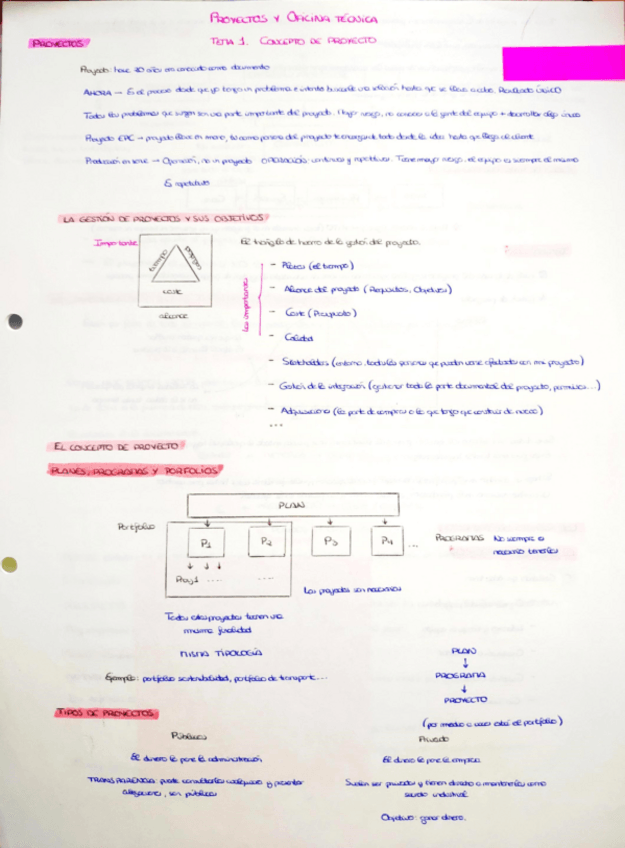 PROYECTOS Y OFICINA TÉCNICA
PROYECTOS
TEMA 1. CONCEPTO DE PROYECTO
Proyecto: hace 30 años era conocido como documento
AHORA → Es el proceso desde que yo tengo un problema e intento buscarle una solución hasta que se lleve a cabo. Resultado ÚNICO
Todos los problemas que surgen son una parte importante del proyecto. Mayor riesgo, no conoces a la gente del equipo + desarrollar algo único
Proyecto EPC → proyecto llave en mano, tú como persona del proyecto te encargas de todo desde la idea hasta que llega al cliente
Producción en serie → Operación, no un proyecto OPERACIÓN: continuas y repetitivas. Tiene mayor riesgo, el equipo es siempre el mismo
Es repetitivo
LA GESTIÓN DE PROYECTOS Y SUS OBJETIVOS
Importante
tiempo
calidad
coste
alcance
El triángulo de hierro de la gestión del proyecto.
Los importantes
- Plazos (el tiempo)
- Alcance del proyecto (Requisitos, Objetivos)
- Coste (Presupuesto)
- Calidad
- Stakeholders (entorno, todas las personas que puedan verse afectadas con mi proyecto)
- Gestión de la integración (gestionar toda la parte documental del proyecto, permisos...)
- Adquisiciones (la parte de compras o lo que tengo que construir de nuevo)
...
EL CONCEPTO DE PROYECTO
PLANES, PROGRAMAS Y PORFOLIOS
PLAN
Portfolio
P1
P2
P3
P4
...
PROGRAMAS
No siempre es
necesario tenerlos
Proy1
....
....
Los proyectos son necesarios
Todos estos proyectos tienen una
misma finalidad
MISMA TIPOLOGÍA
Ejemplo: portfolio sostenibilidad, portfolio de transporte...
PLAN
↓
PROGRAMA
↓
PROYECTO
(por medio a veces está el portfolio)
TIPOS DE PROYECTOS
Públicos
El dinero lo pone la administración
TRANSPARENCIA: puede consultarlos cualquiera y presentar
alegaciones, son públicos
Privado
El dinero lo pone la empresa
Suelen ser privados y tienen derecho a mantenerlos como
secreto industrial
Objetivo: ganar dinero.